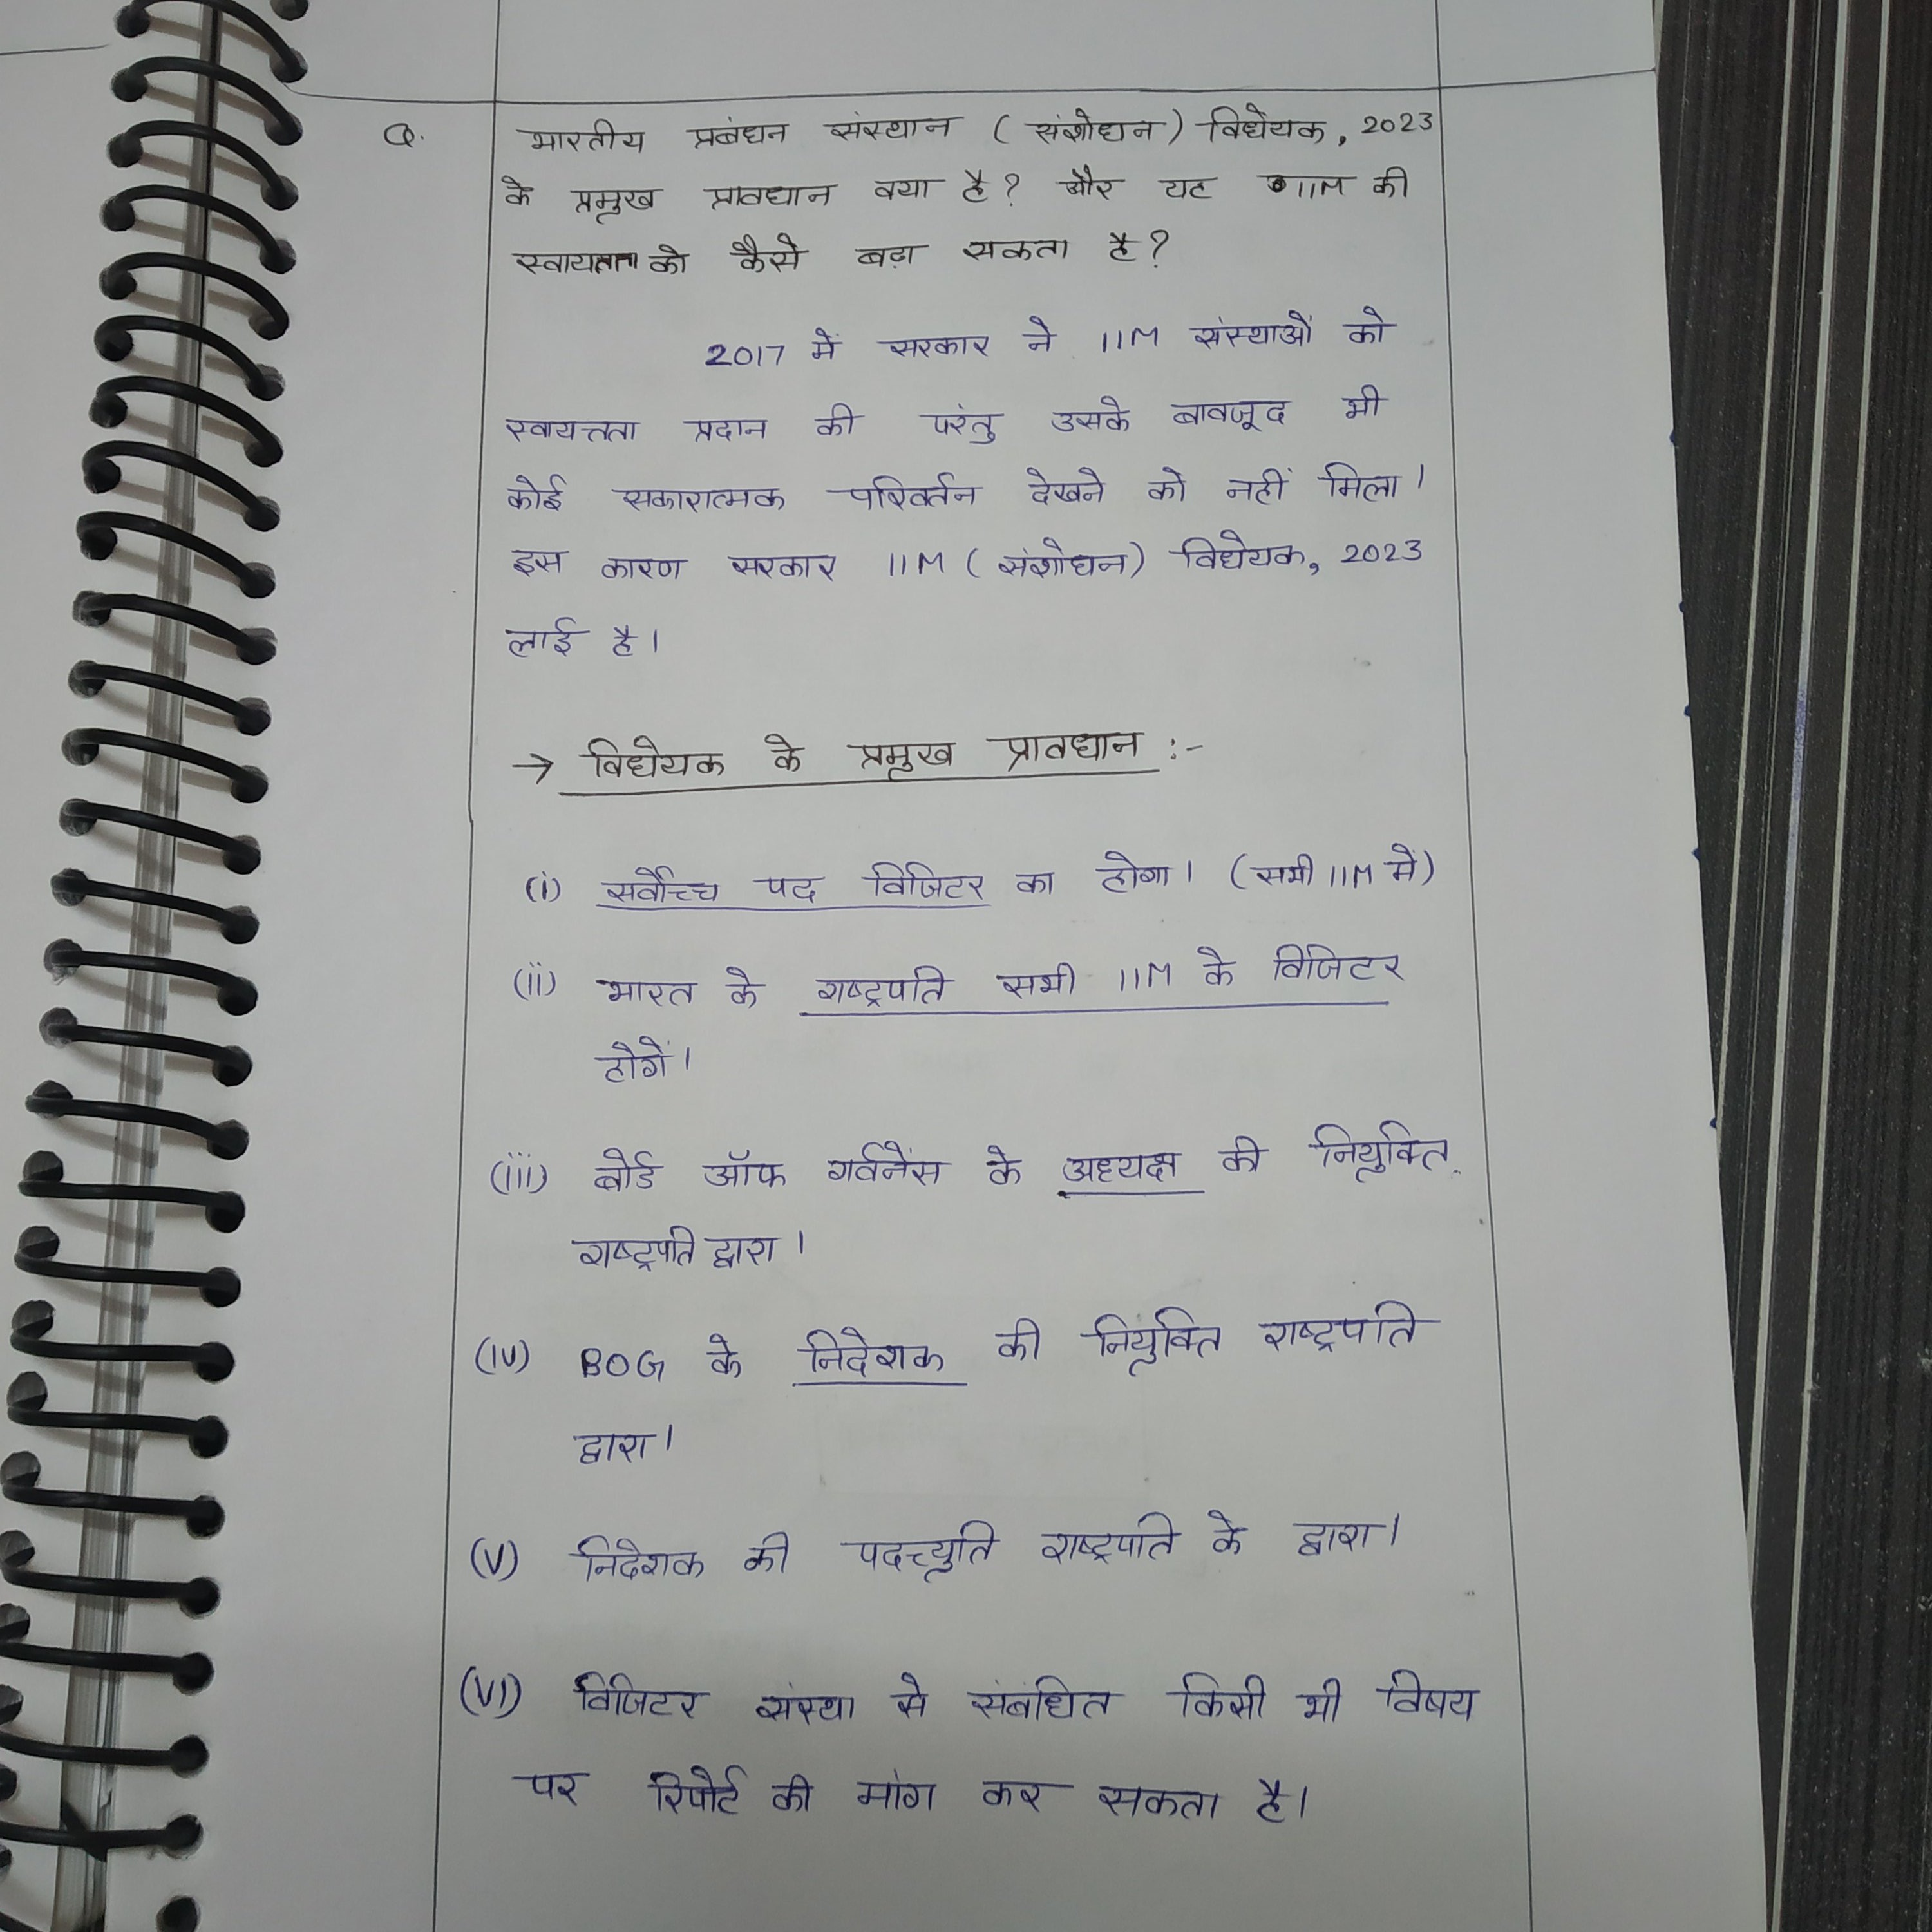 Q. भारतीय प्रबंधन संस्थान ( संशोधन ) विधेयक, 2023
के प्रमुख प्रावधान क्या है? और यह IIM की
स्वायतता को कैसे बढ़ा सकता है?
2017 में सरकार ने IIM संस्थाओं को
स्वायत्तता प्रदान की परंतु उसके बावजूद भी
कोई सकारात्मक परिवर्तन देखने को नहीं मिला।
इस कारण सरकार IIM ( संशोधन ) विधेयक, 2023
लाई है।
→ विधेयक के प्रमुख प्रावधान :-
(i) सर्वोच्च पद विजिटर का होगा। (सभी IIM में)
(ii) भारत के राष्ट्रपति सभी IIM के विजिटर
होगें।
(iii) बोर्ड ऑफ गर्वनेंस के अध्यक्ष की नियुक्ति
राष्ट्रपति द्वारा।
(iv) BOG के निदेशक की नियुक्ति राष्ट्रपति
द्वारा।
(v) निदेशक की पदच्युति राष्ट्रपति के द्वारा।
(vi) विजिटर संस्था से संबंधित किसी भी विषय
पर रिपोर्ट की मांग कर सकता है।